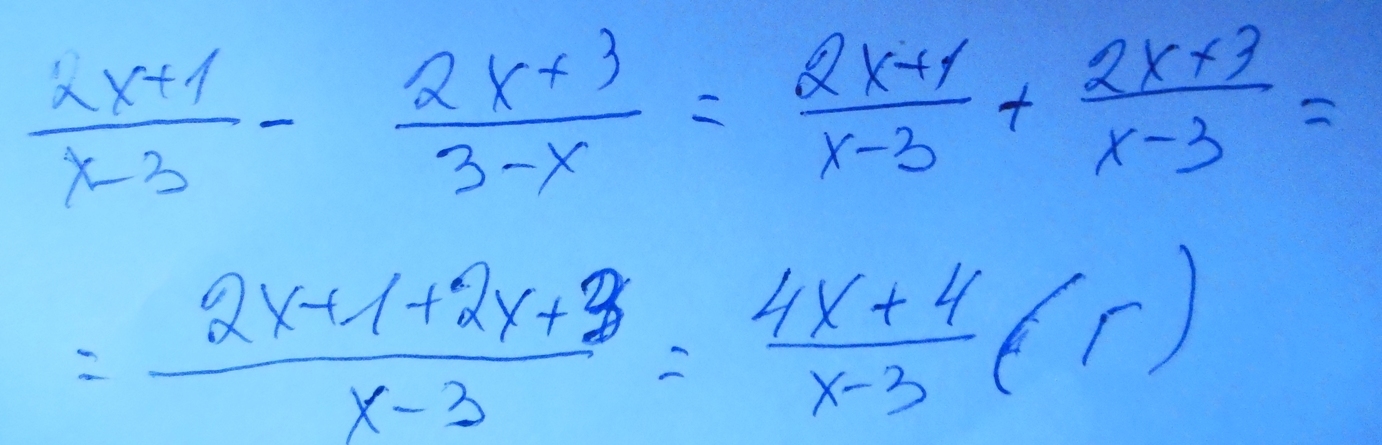 (2x+1)/(x-3) - (2x+3)/(3-x) = (2x+1)/(x-3) + (2x+3)/(x-3) =
= (2x+1+2x+3)/(x-3) = (4x+4)/(x-3) (г)